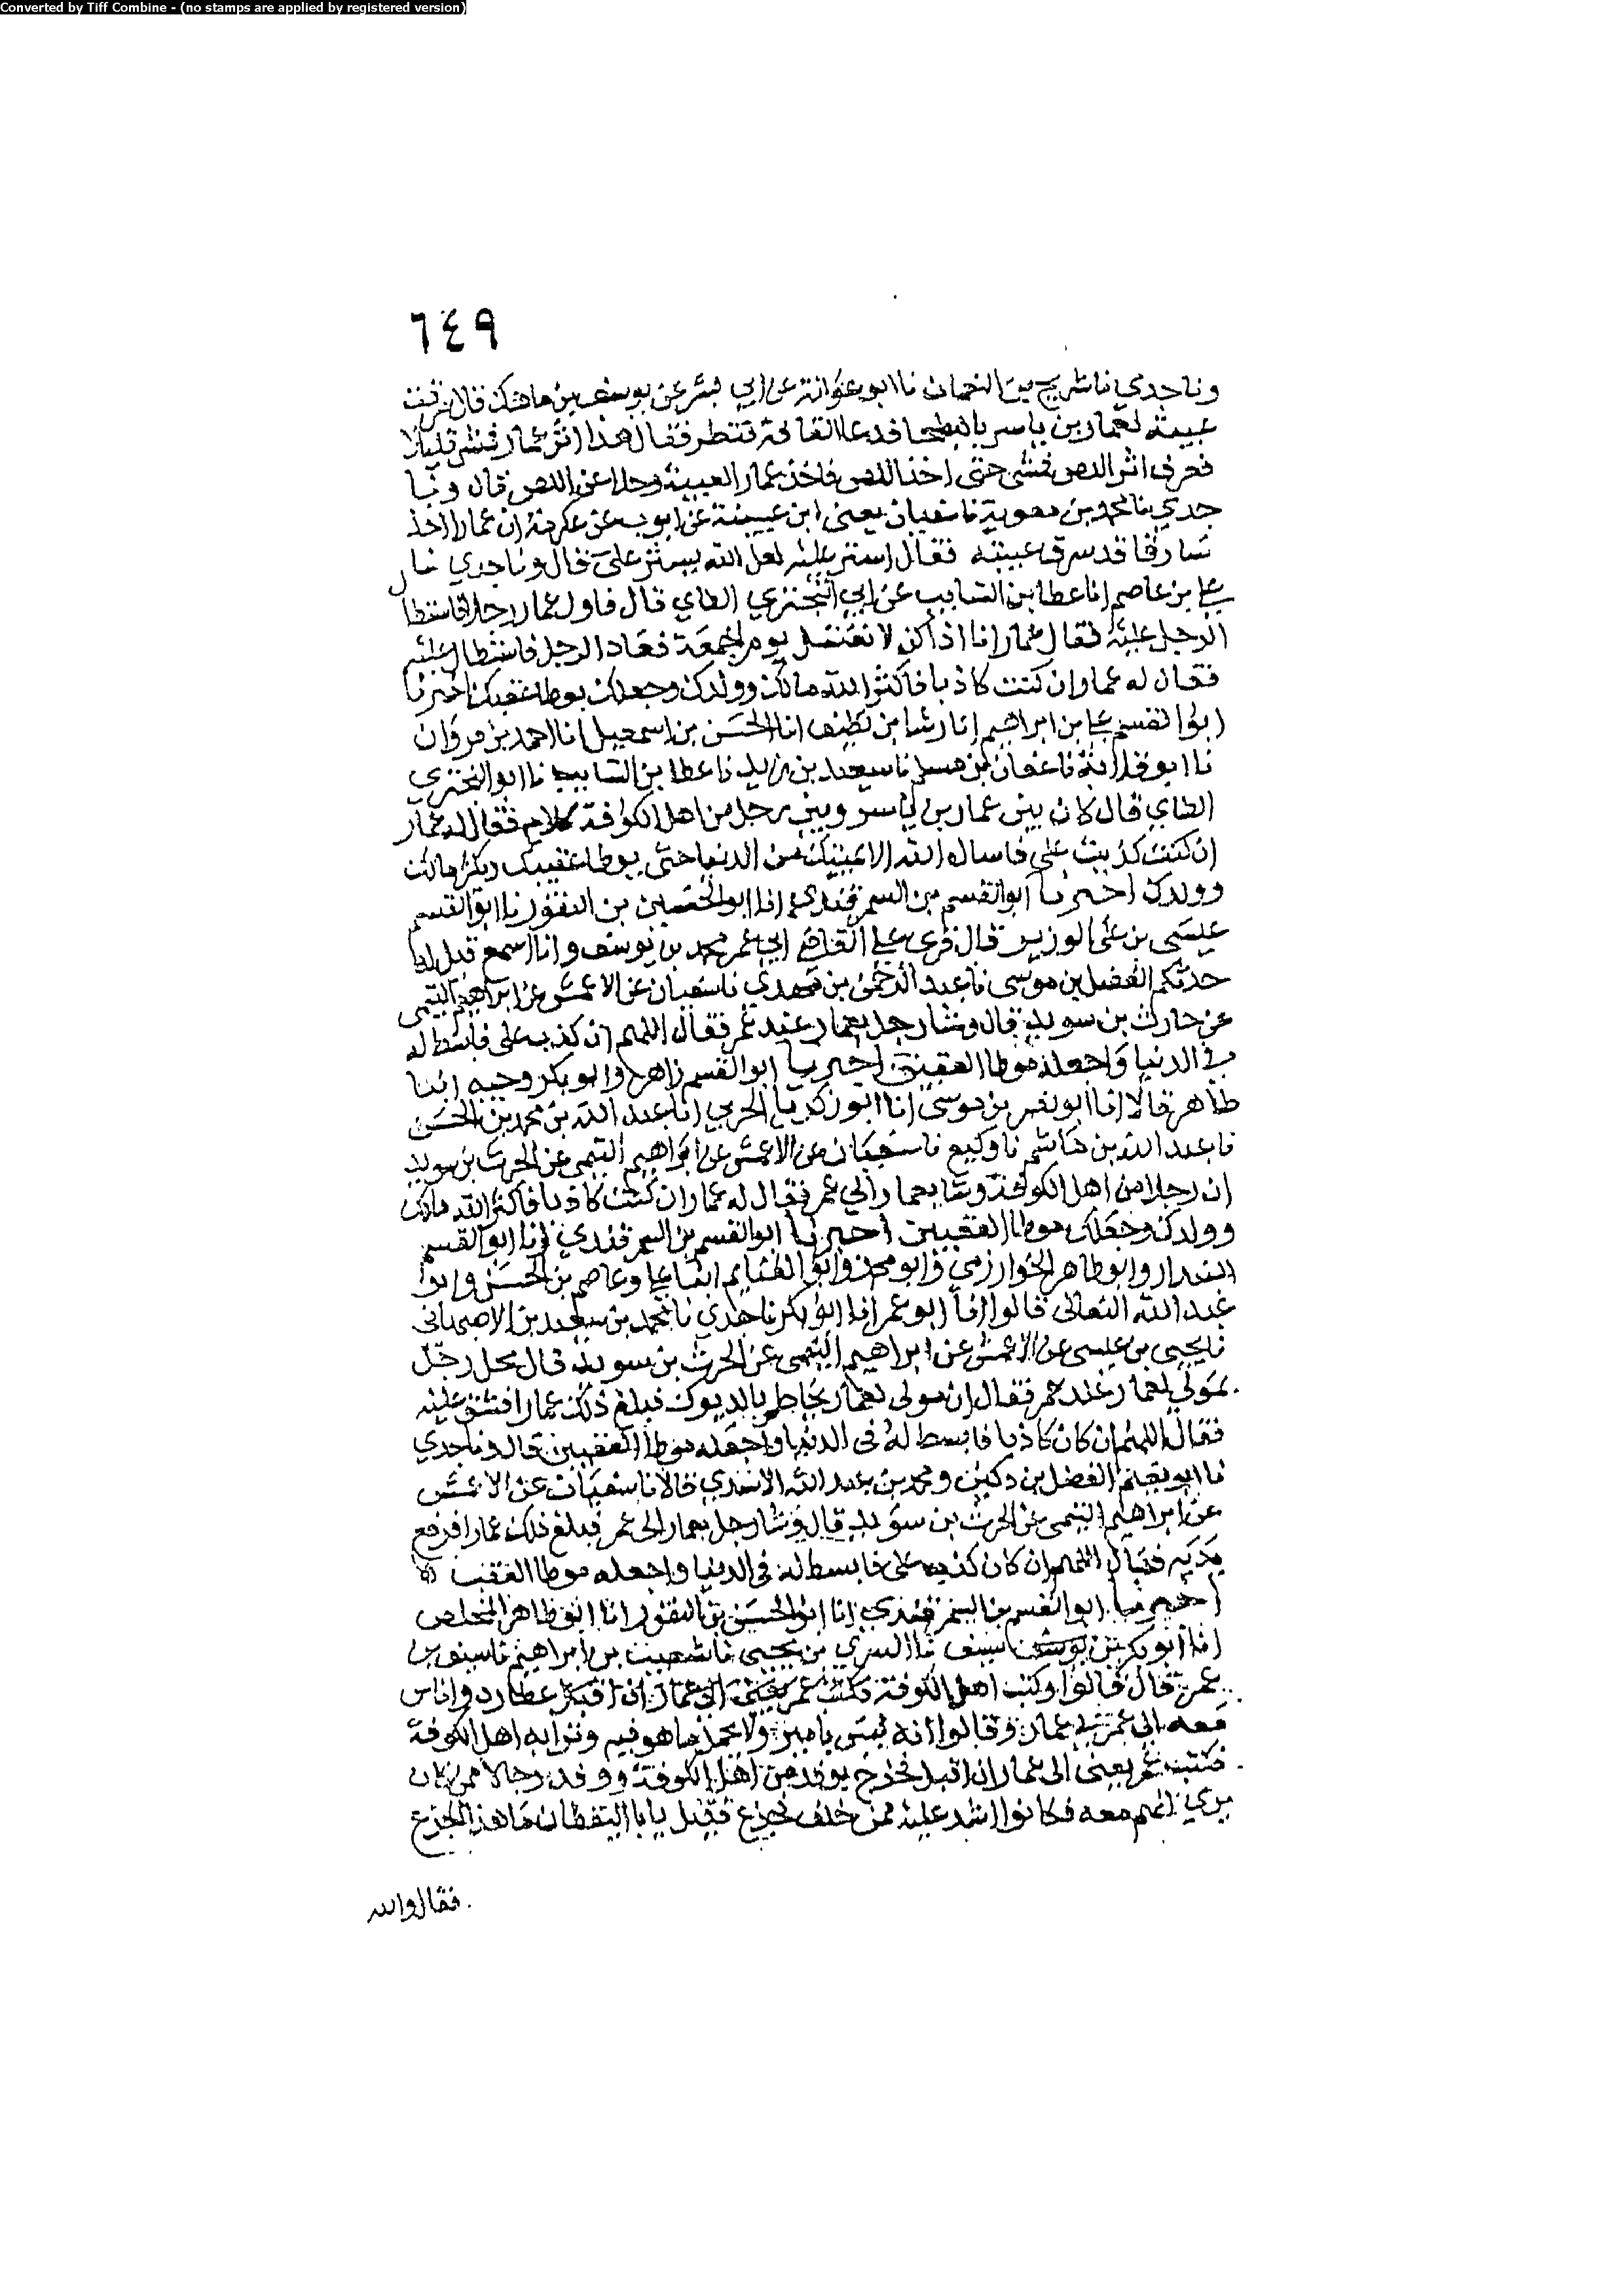 Converted by Tiff Combine - (no stamps are applied by registered version)
٦٤٩
ونا جدي نا شريح بن النعمان نا ابو عوانة عن ابي بشر عن يوسف بن ماهك قال سرقت
عيبة لعمار بن ياسر بالبطحا فدعا القافة تنتظر فقال هذا اثر عمار فمشى قليلا
فعرف اثر اللص فمشى حتى اخذ اللص فاخذ عمار العيبة وخلا عن اللص قال ونا
جدي نا محمد بن معوية نا سفيان يعني ابن عيينة عن ايوب عن عكرمة ان عمارا اخذ
سارقا قد سرق عيبته فقال استر عليه لعل الله يستر علي قال ونا جدي نا
علي بن عاصم انا عطا بن السايب عن ابي البختري الطاي قال قاول عمار رجلا فاستطا
الرجل عليه فقال عمار انا اذا كمن لا يغتسل يوم الجمعة فعاد الرجل فاستطال عليه
فقال له عمار ان كنت كاذبا فاكثر الله مالك وولدك وجعلك يوطا عقبك اخبرنا
ابوا القسم علي بن ابراهيم انا رشا بن نظيف انا الحسن بن اسمعيل انا احمد بن مروان
نا ابو قلابة نا عفان بن مسلم نا سعيد بن زيد نا عطا بن السايب نا ابو البختري
الطاي قال كان بين عمار بن ياسر وبين رجل من اهل الكوفة كلام فقال له عمار
ان كنت كذبت علي فاسال الله الا يميتك من الدنيا حتى يوطا عقبك ويكثر مالك
وولدك اخبرنا ابوا القسم بن السمرقندي انا ابو الحسين بن النقور نا ابو القسم
عيسى بن علي الوزير قال قرى على القاضي ابي عمر محمد بن يوسف وانا اسمع قيل له
حدثكم الفضل بن موسى نا عبد الرحمن بن مهدي نا سفيان عن الاعمش عن ابراهيم التيمي
عن حارث بن سويد قال وشا رجل بعمار عند عمر فقال اللهم ان كذب علي فابسط له
في الدنيا واجعله موطا العقبين اخبرنا ابو القسم زاهر وابو بكر وجيه ابنا
طاهر قالا انا ابو نصر بن موسى انا ابو زكريا الحربي انا عبد الله بن محمد بن الحسن
نا عبد الله بن هاشم نا وكيع نا سفيان عن الاعمش عن ابراهيم التيمي عن الحرث بن سويد
ان رجلا من اهل الكوفة وشا بعمار الى عمر فقال له عمار ان كنت كاذبا فاكثر الله مالك
وولدك وجعلك موطا العقبين اخبرنا ابو القسم بن السمرقندي انا ابو القسم
البندار وابو طاهر الخوارزمي وابو محمد وابو الغنايم ابنا علي وعاصم بن الحسن وابوا
عبد الله النعالي قالوا انا ابو عمر انا ابو بكر نا جدي نا محمد بن سعيد بن الاصبهاني
نا يحيى بن عيسى عن الاعمش عن ابراهيم التيمي عن الحرث بن سويد قال محل رجل
بمولي لعمار عند عمر فقال ان مولى لعمار يخاطر بالديوك فبلغ ذلك عمارا فشق عليه
فقال اللهم ان كان كاذبا فابسط له في الدنيا واجعله موطا العقبين قال ونا جدي
نا ابو نعيم الفضل بن دكين ومحمد بن عبد الله الاسدي قالا نا سفيان عن الاعمش
عن ابراهيم التيمي عن الحرث بن سويد قال وشا رجل بعمار الى عمر فبلغ ذلك عمارا فرفع
يديه فقال اللهم ان كان كذب علي فابسط له في الدنيا واجعله موطا العقب
اخبرنا ابوا القسم بن السمرقندي انا ابو الحسين بن النقور انا ابو طاهر المخلص
انا ابو بكر بن سيف نا السري بن يحيى نا شعيب بن ابراهيم نا سيف بن
عمر قال قالوا وكتب اهل الكوفة فكتب عمر يعني الى عمار ان اقبل عطارد واناس
معه الى عمر في عمار وقالوا انه ليس بامير ولا يحمل ما هو فيه ونزا به اهل الكوفة
فكتب عمر يعني الى عمار ان اقبل فخرج بوفد من اهل الكوفة ووفد رجالا ممن كان
يرى انهم معه فكانوا اشد عليه ممن خلف فجزع فقيل يا با اليقظان ما هذا الجزع
فقال والله